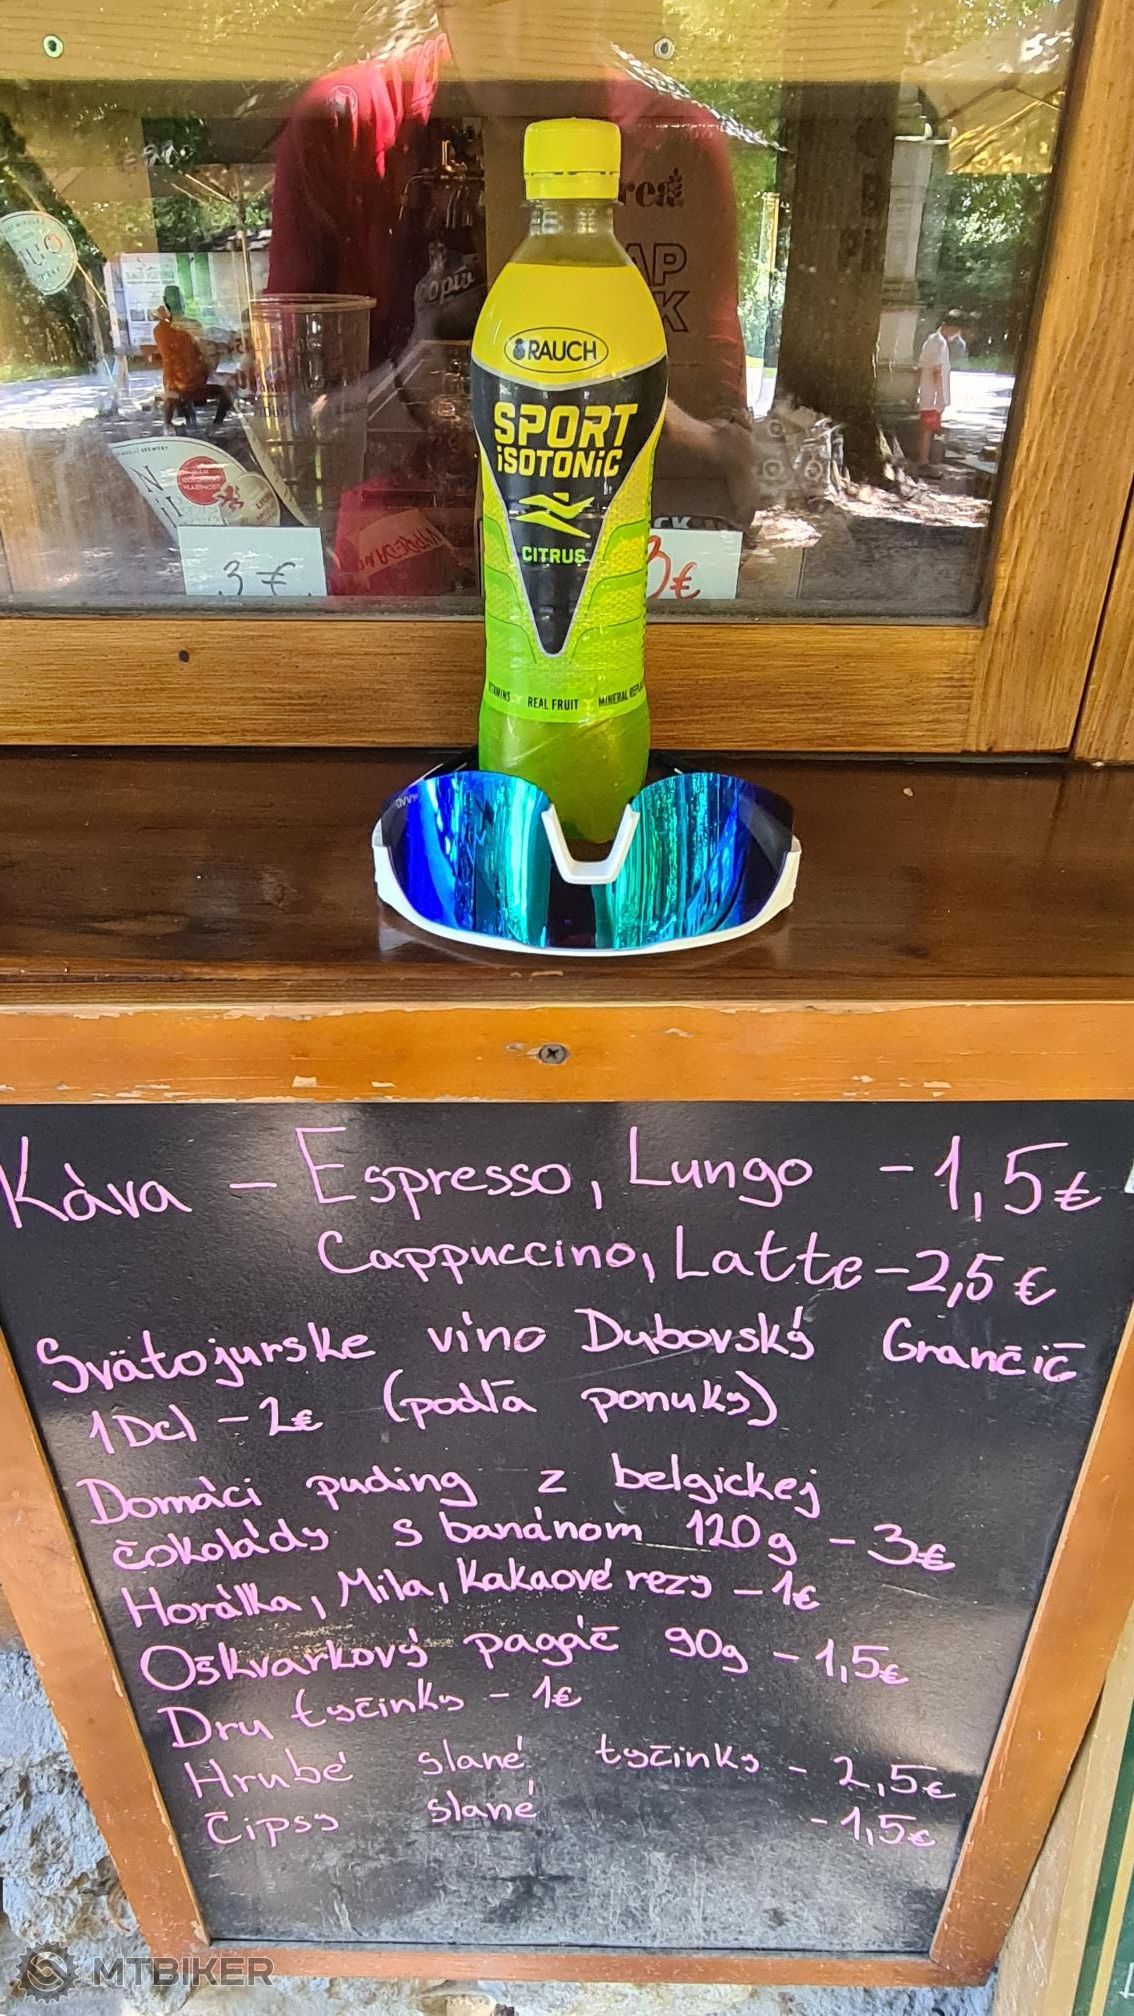 RAUCH
SPORT
ISOTONIC
CITRUS
REAL FRUIT
3 €
3€
Káva - Espresso, Lungo - 1,5€
Cappuccino, Latte - 2,5 €
Svätojurske víno Dubovský Grančič
1Dcl - 2€ (podľa ponuky)
Domáci puding z belgickej
čokolády s banánom 120g - 3€
Horálka, Mila, Kakaové rezy - 1€
Oškvarkový pagáč 90g - 1,5€
Dru tyčinky - 1€
Hrubé slané tyčinky - 2,5€
Čipsy slané - 1,5€
MTBIKER